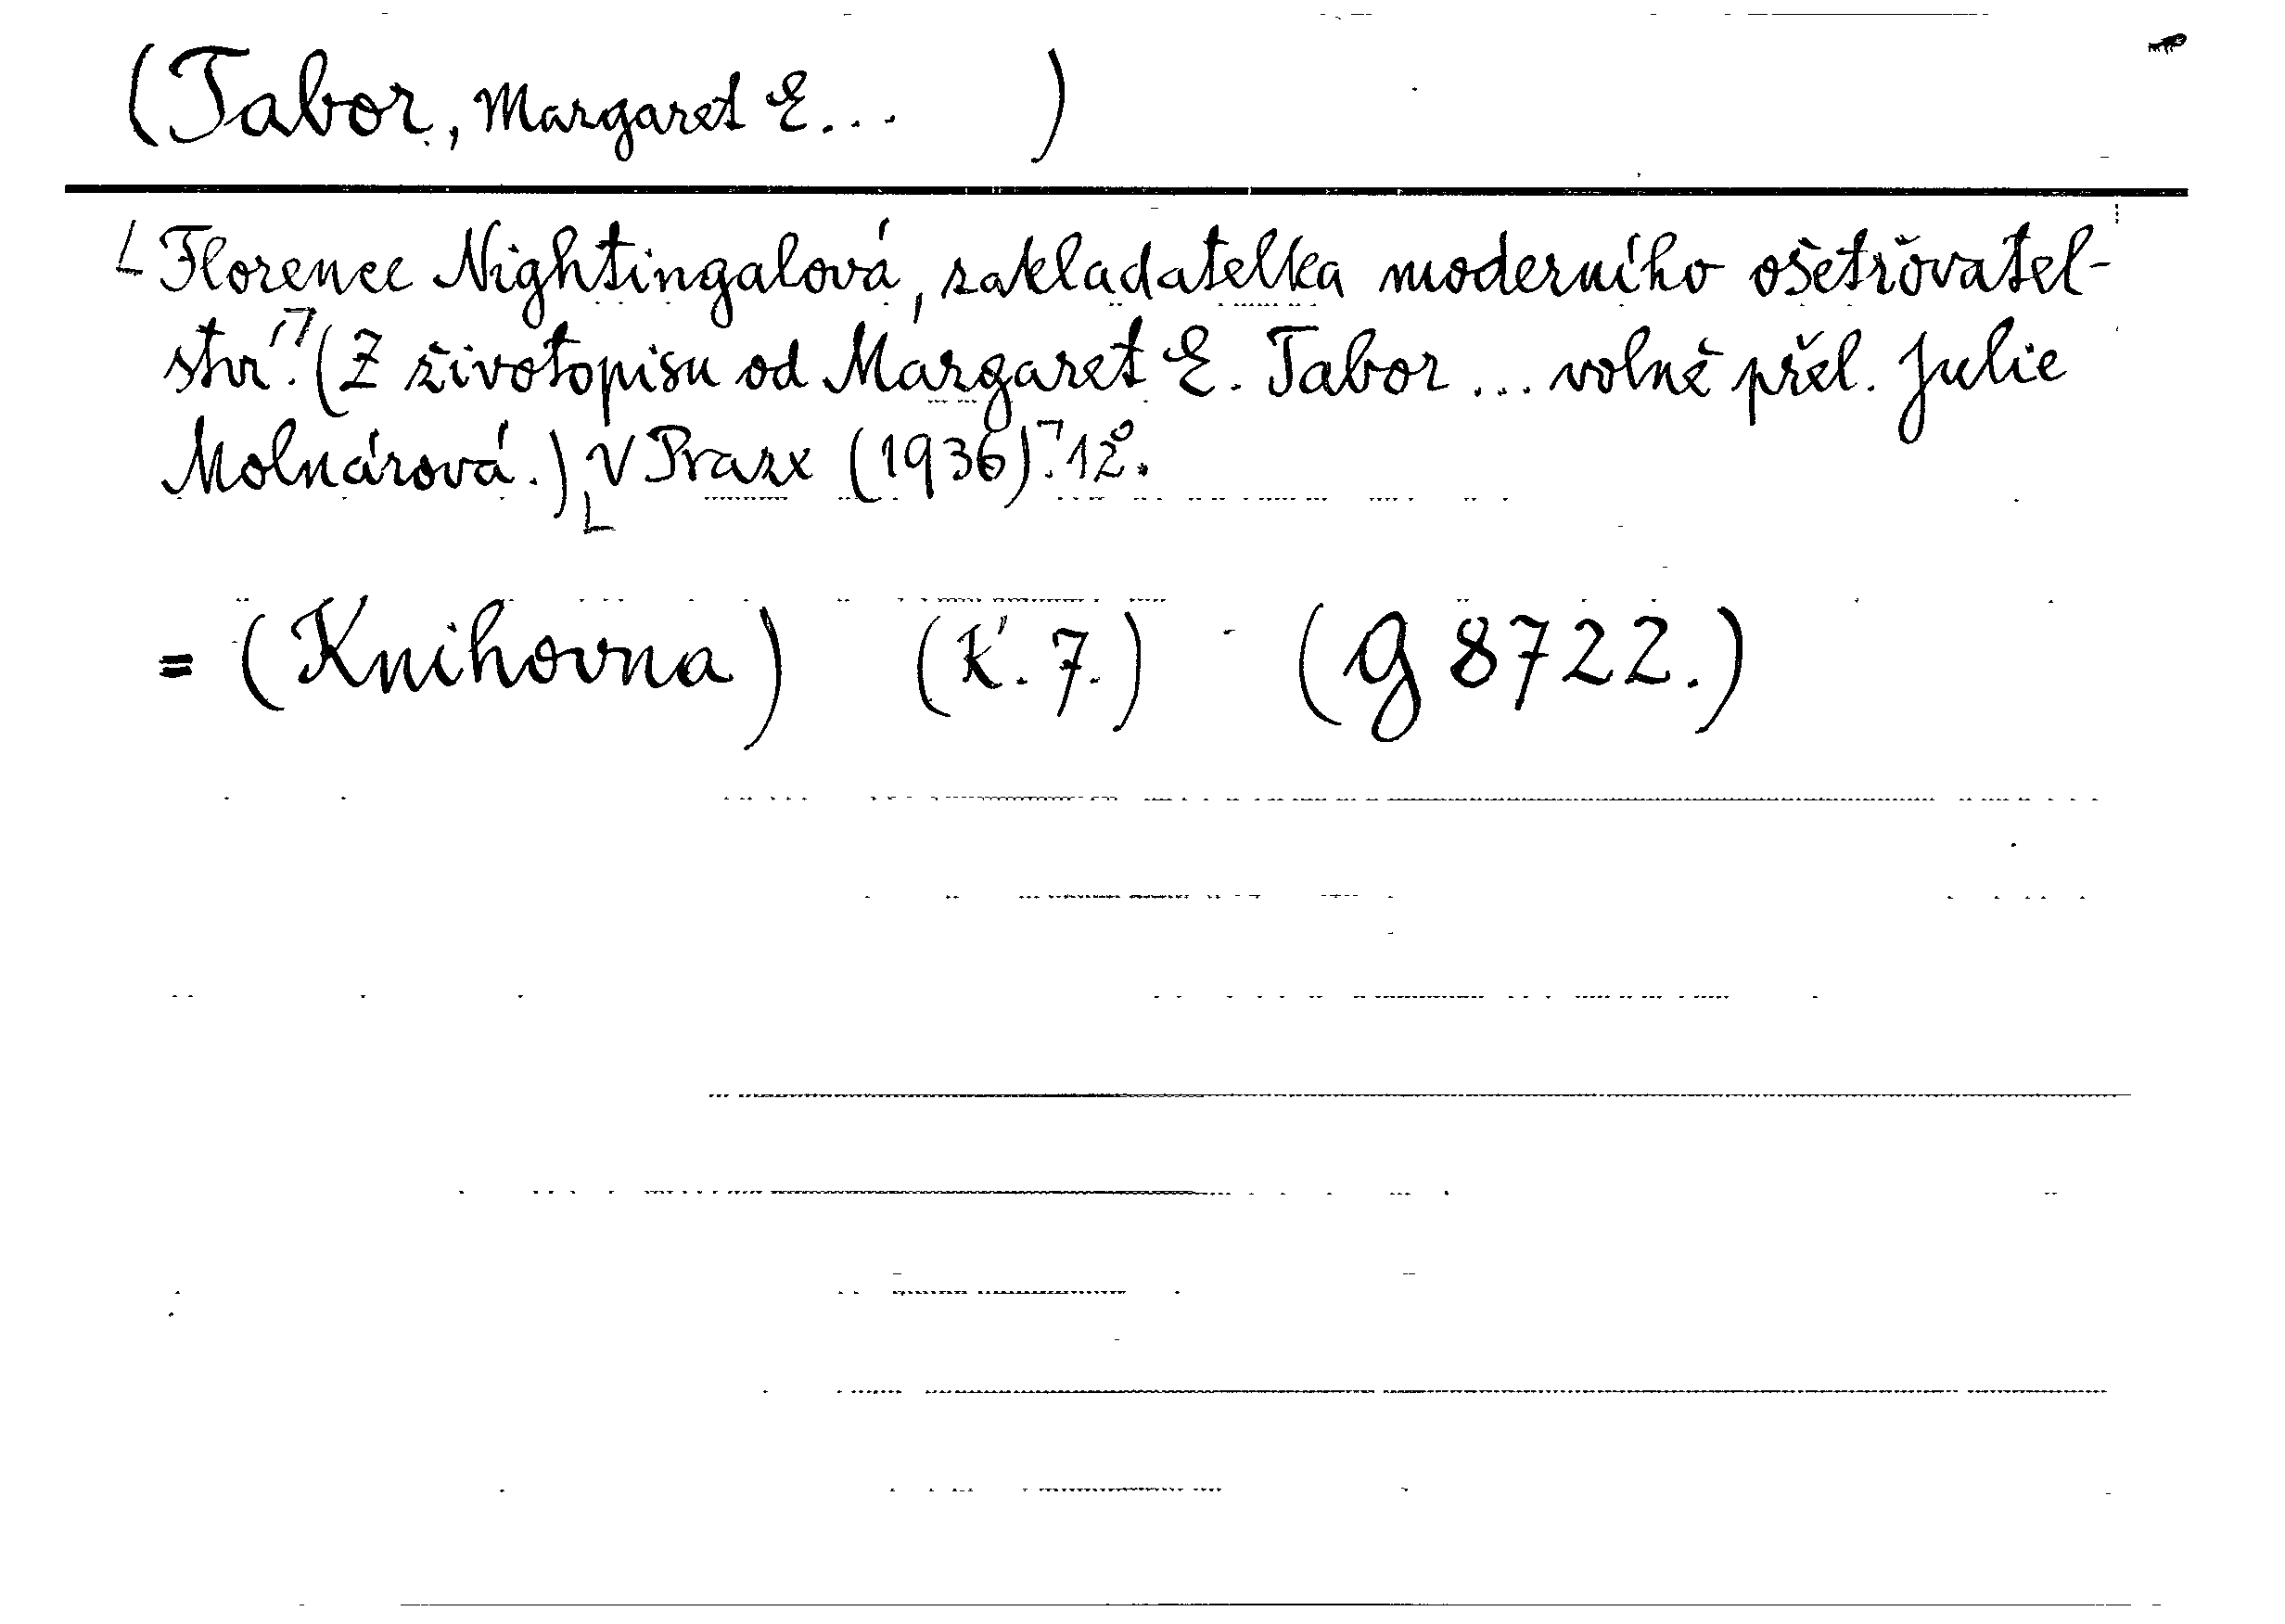 (Tabor, Margaret E... )
Florence Nightingalová, zakladatelka moderního ošetřovatel-
ství. (Z životopisu od Margaret E. Tabor ... volně přel. Julie
Molnárová.) V Praze (1936). 12°.
= (Knihovna) (K. 7.) - (g 8722.)